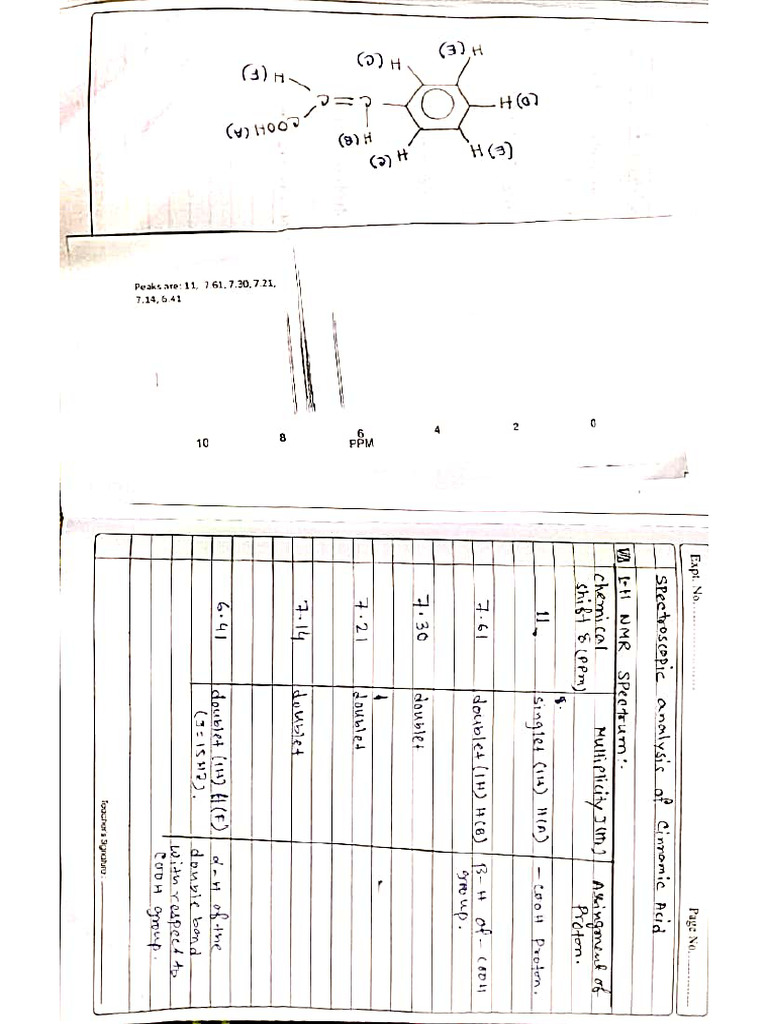 H (E)
(C) H
H (F)
H (D)
C = C
COOH (A)
H (B)
(C) H
H (E)
Peaks are: 11, 7.61, 7.30, 7.21,
7.14, 6.41
10 8 6 4 2 0
PPM
Expt. No. Page No.
Spectroscopic analysis of Cinnamic Acid
1-H NMR Spectrum:-
Chemical shift δ (PPm) Multiplicity J (Hz) Assingment of Proton.
11 singlet (1H) H(A) - COOH Proton.
7.61 doublet (1H) H(B) β-H of - COOH group.
7.30 doublet
7.21 doublet
7.14 doublet
6.41 doublet (1H) H(F) (J = 15HZ). α-H of the double bond with respect to COOH group.
Teacher's Signature :